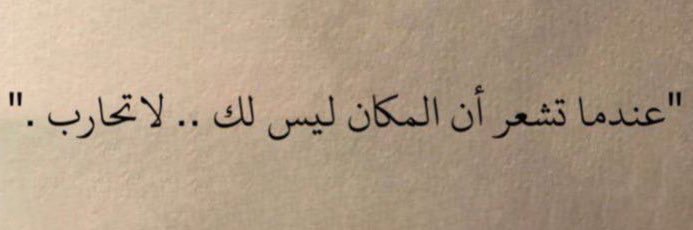 "عندما تشعر أن المكان ليس لك .. لاتحارب ."